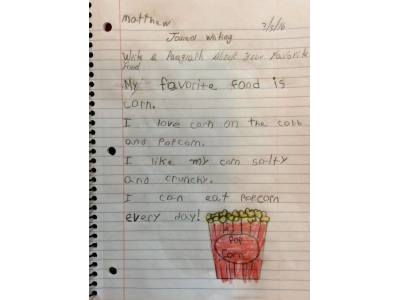 matthew
3/5/16
Journal Writing
Write a Paragraph About Your Favorite
Food
My favorite food is
corn.
I love corn on the cobb
and popcorn.
I like my corn salty
and crunchy.
I can eat popcorn
every day!
Pop
Corn